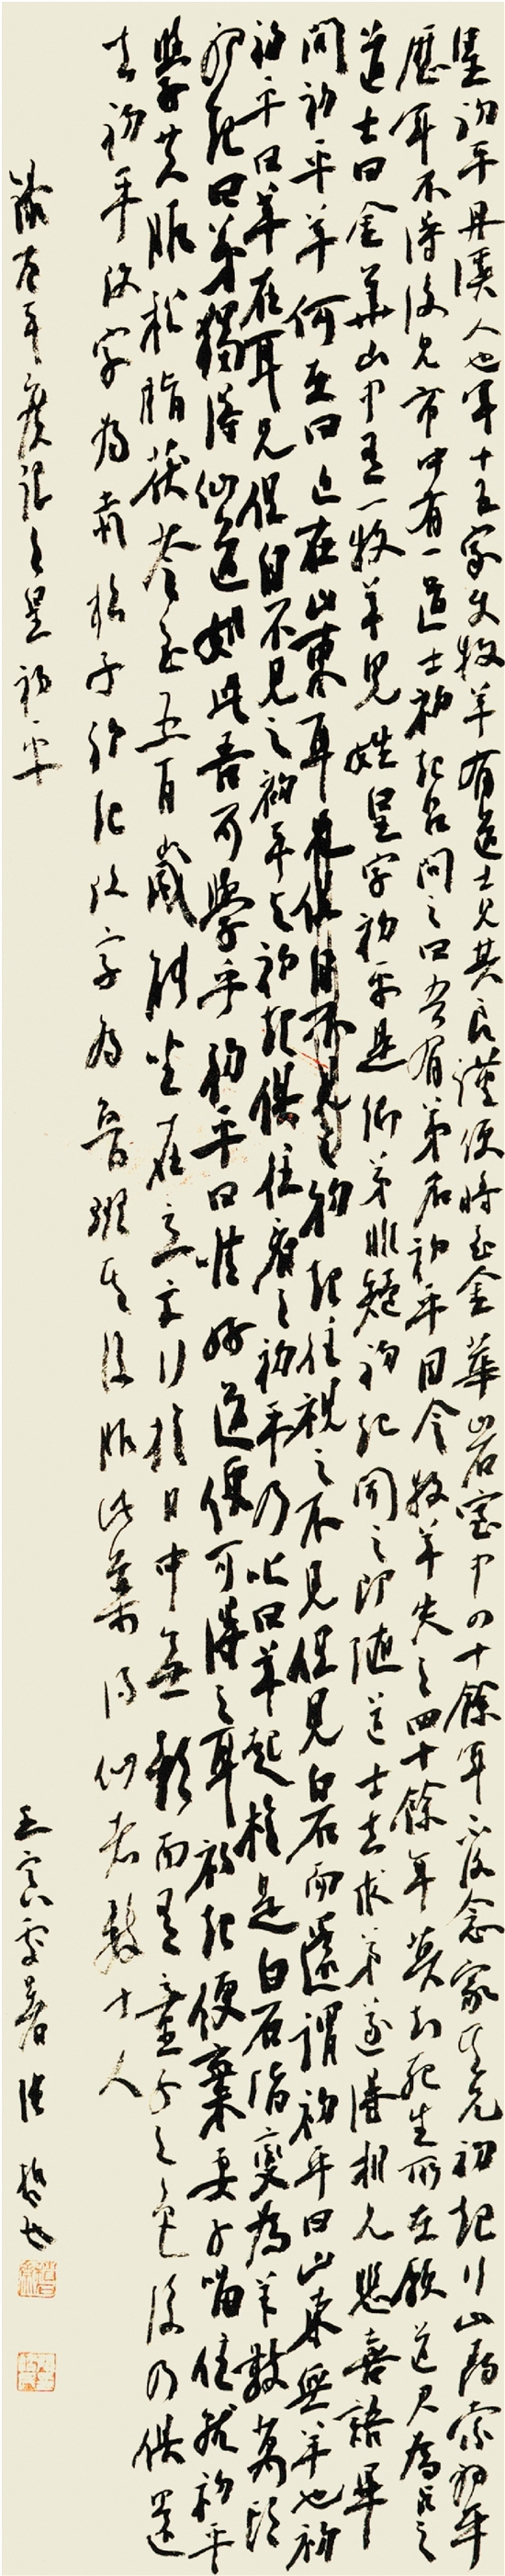 皇初平丹溪人也年十五家使牧羊有道士見其良謹便將至金華山石室中四十餘年不復念家其兄初起行山尋索初平
歷年不得後見市中有一道士初起召問之曰吾有弟名初平因令牧羊失之四十餘年莫知死生所在願道君為占之
道士曰金華山中有一牧羊兒姓皇字初平是卿弟非疑初起聞之即隨道士去求弟遂得相見悲喜語畢
問初平羊何在曰近在山東耳兄但自不見之初起往視之不見但見白石而還謂初平曰山東無羊也初
初平曰羊在耳兄但自不見之初平與初起俱往看之初平乃叱曰羊起於是白石皆變為羊數萬頭
初起曰弟獨得仙道如此吾可學乎初平曰惟好道便可得之耳初起便棄妻子留住就初平
學共服松脂茯苓至五百歲能坐在立亡行於日中無影而有童子之色後乃俱還
去初平改字為赤松子初起改字為魯班其後服此藥得仙者數十人
壬寅